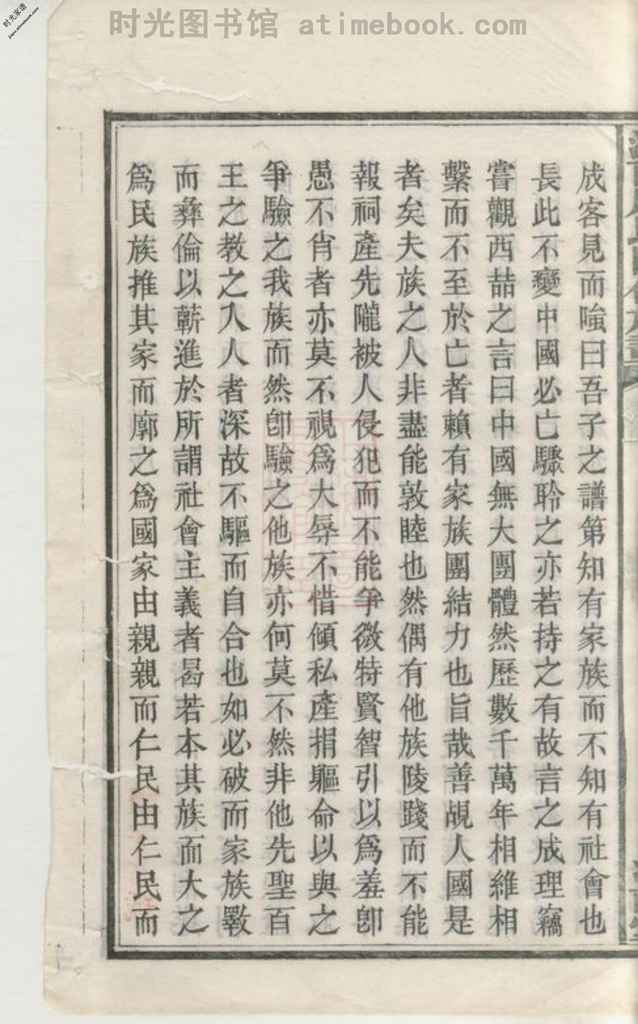 时光图书馆 atimebook.com
时光家谱
成客見而嗤曰吾子之譜第知有家族而不知有社會也
長此不變中國必亡驟聆之亦若持之有故言之成理竊
嘗觀西喆之言曰中國無大團體然歷數千萬年相維相
繫而不至於亡者賴有家族團結力也旨哉善覘人國是
者矣夫族之人非盡能敦睦也然偶有他族陵踐而不能
報祠產先隴被人侵犯而不能爭微特賢智引以爲羞卽
愚不肖者亦莫不視爲大辱不惜傾私產捐軀命以與之
爭驗之我族而然卽驗之他族亦何莫不然非他先聖百
王之教之入人者深故不驅而自合也如必破而家族斁
而彝倫以蘄進於所謂社會主義者曷若本其族而大之
爲民族推其家而廓之爲國家由親親而仁民由仁民而